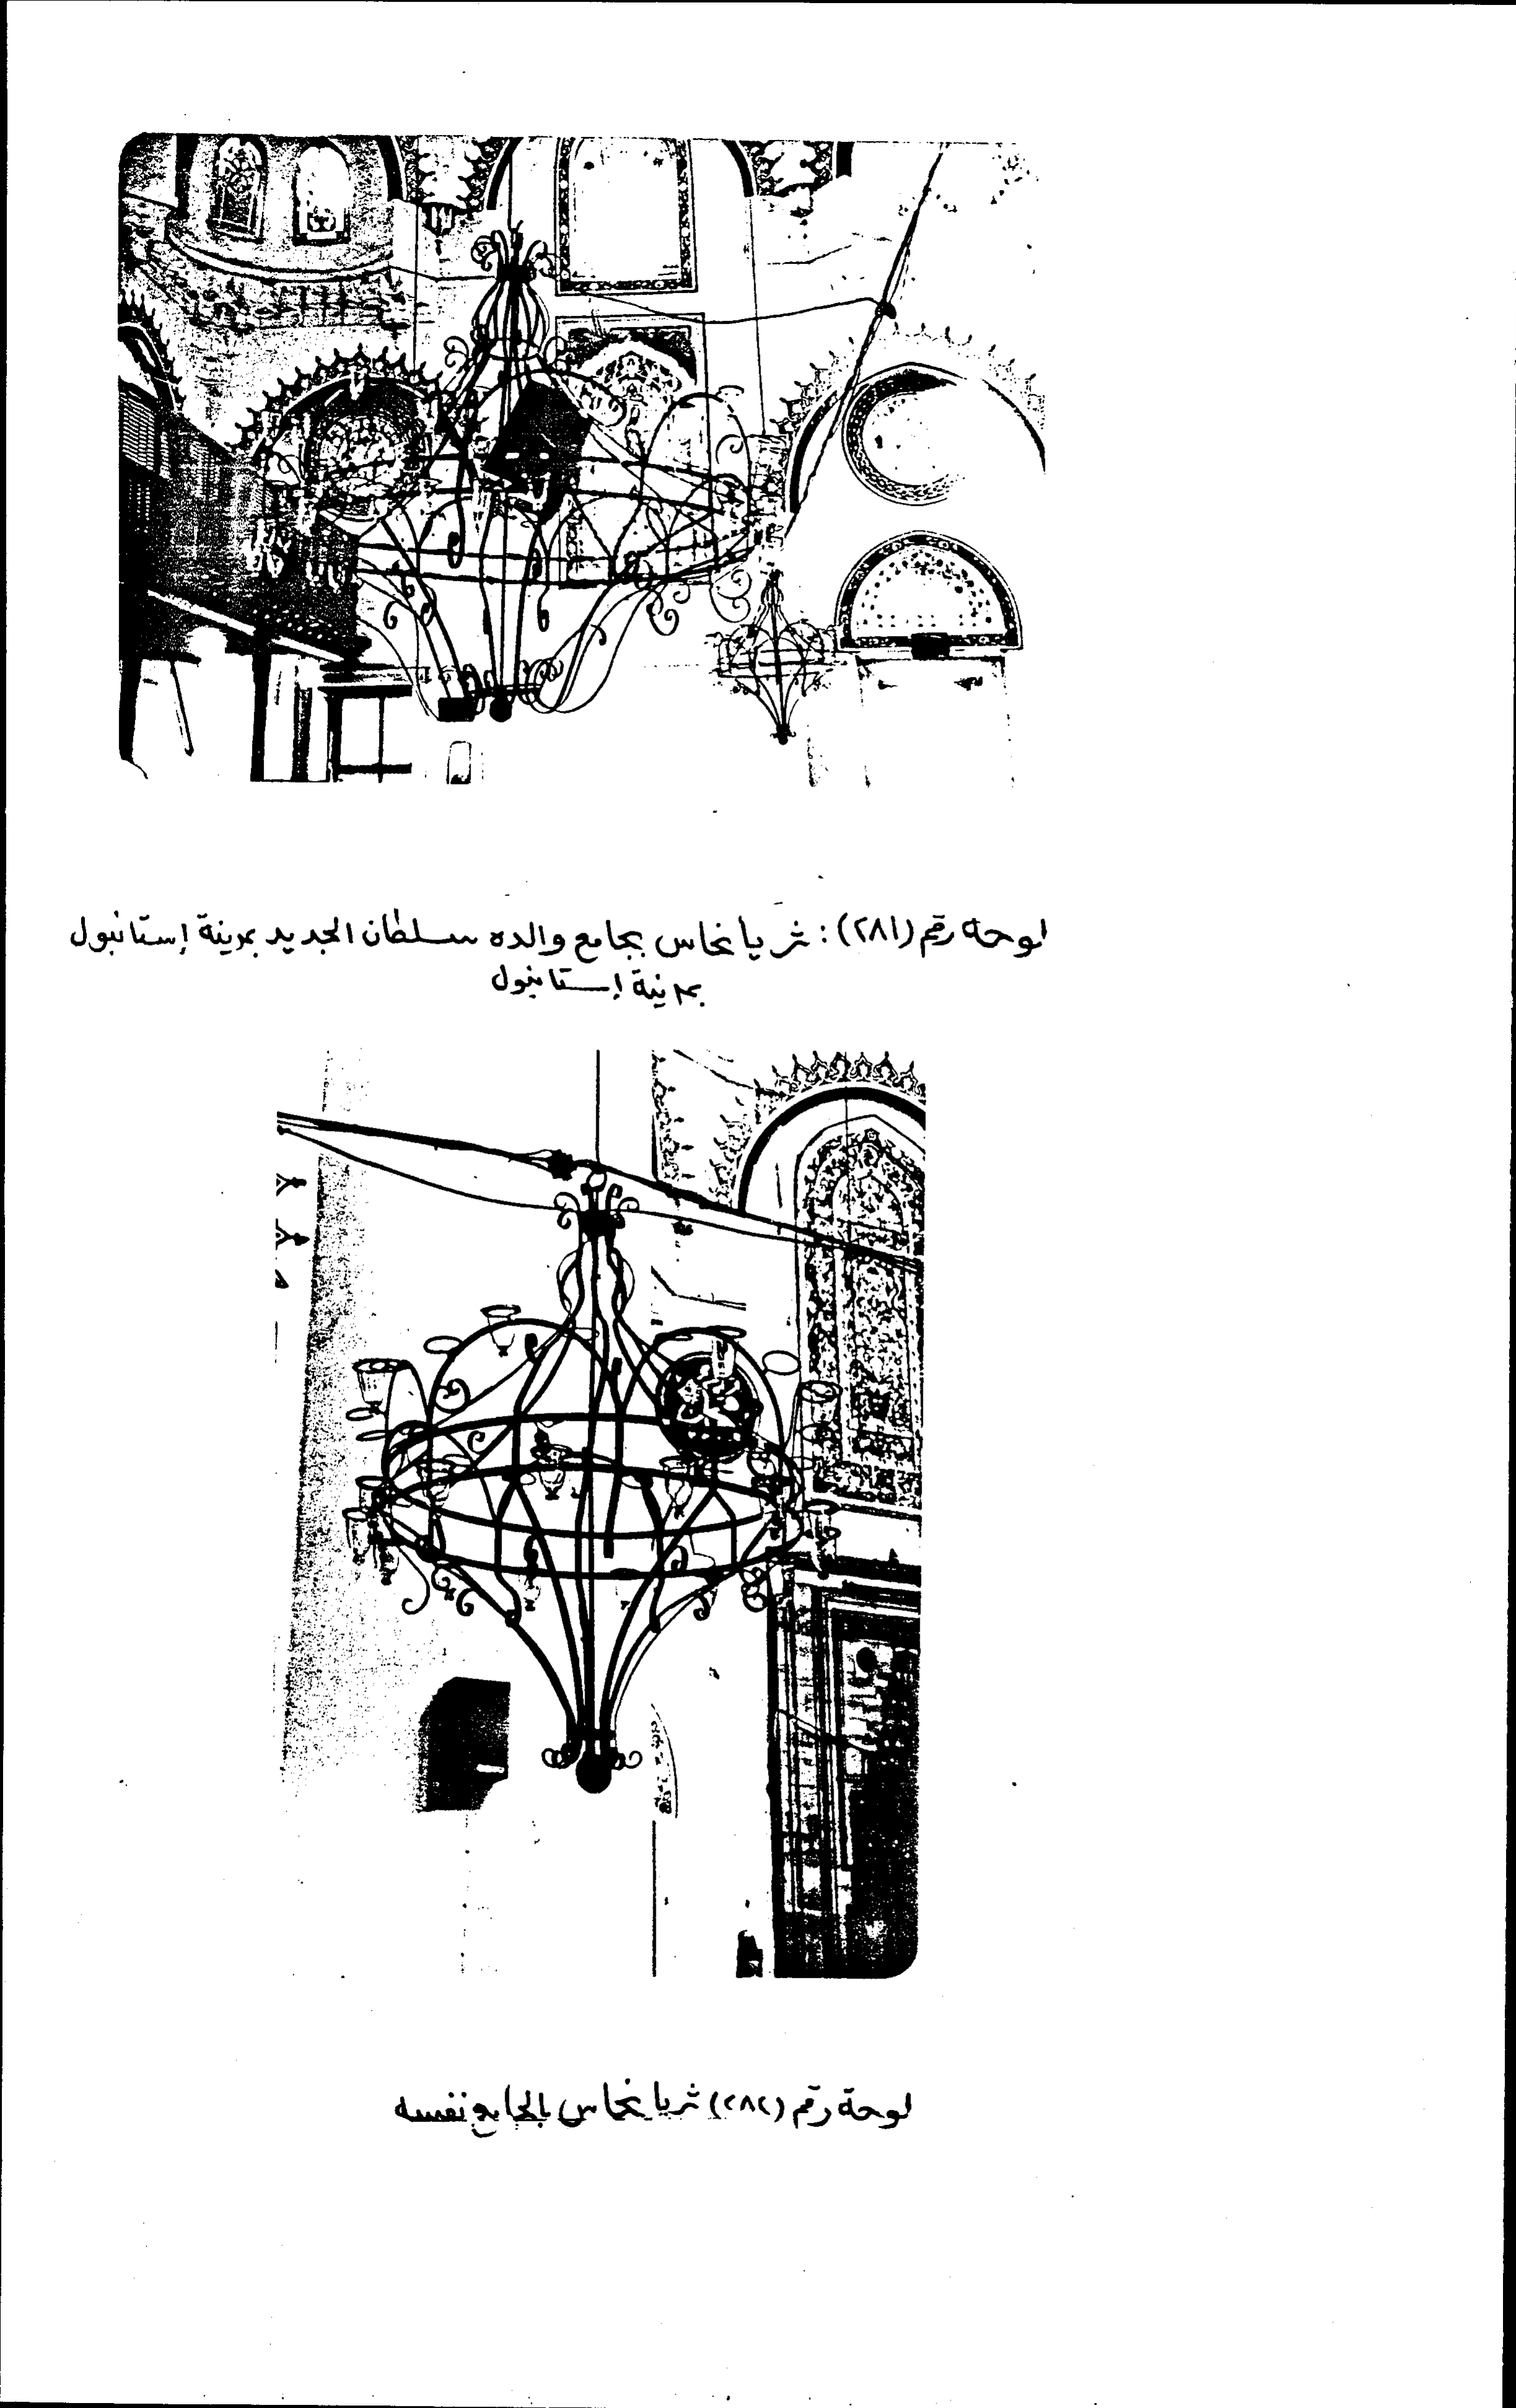 لوحة رقم (٢٨١) : ثريا نحاس بجامع والده سلطان الجديد بمدينة إستانبول
بمدينة إستانبول
لوحة رقم (٢٨٢) ثريا نحاس بالجامع نفسه